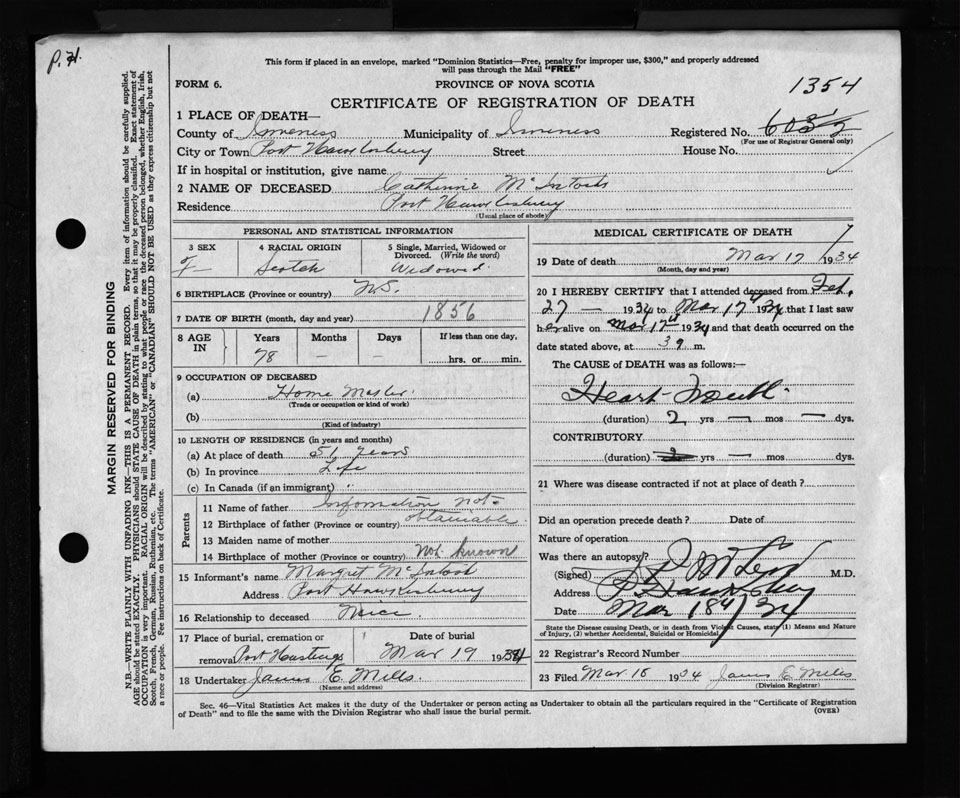 P. 71.
This form if placed in an envelope, marked "Dominion Statistics—Free, penalty for improper use, $300," and properly addressed
will pass through the Mail "FREE"
FORM 6.
PROVINCE OF NOVA SCOTIA
1354
CERTIFICATE OF REGISTRATION OF DEATH
1 PLACE OF DEATH—
County of Inverness Municipality of Inverness Registered No.
(For use of Registrar General only)
City or Town Port Hawkesbury Street House No.
If in hospital or institution, give name
2 NAME OF DECEASED Catherine McIntosh
Residence Port Hawkesbury
(Usual place of abode)
PERSONAL AND STATISTICAL INFORMATION
3 SEX F
4 RACIAL ORIGIN Scotch
5 Single, Married, Widowed or Divorced. (Write the word) Widowed.
6 BIRTHPLACE (Province or country) N.S.
7 DATE OF BIRTH (month, day and year) 1856
8 AGE IN Years 78 Months — Days — If less than one day, hrs. or min.
9 OCCUPATION OF DECEASED
(a) Home
(Trade or occupation or kind of work)
(b)
(Kind of industry)
10 LENGTH OF RESIDENCE (in years and months)
(a) At place of death 51 years
(b) In province Life
(c) In Canada (if an immigrant) "
Parents
11 Name of father Information not
12 Birthplace of father (Province or country) obtainable
13 Maiden name of mother
14 Birthplace of mother (Province or country) Not known
15 Informant's name Margret McIntosh
Address Port Hawkesbury
16 Relationship to deceased Niece
17 Place of burial, cremation or removal Port Hastings Date of burial Mar 19 1934
18 Undertaker James E. Mills.
(Name and address)
MEDICAL CERTIFICATE OF DEATH
19 Date of death Mar 17 1934
(Month, day and year)
20 I HEREBY CERTIFY that I attended deceased from Feb.
27 — 1934 to Mar 17th 1934 that I last saw
her alive on Mar 17th 1934 and that death occurred on the
date stated above, at 3 m.
The CAUSE OF DEATH was as follows:—
Heart Trouble.
(duration) 2 yrs — mos — dys.
CONTRIBUTORY
(duration) yrs — mos — dys.
21 Where was disease contracted if not at place of death?
Did an operation precede death? Date of
Nature of operation
Was there an autopsy?
(Signed) McLeod M.D.
Address Pt Hawkesbury
Date Mar 18th/34
State the Disease causing Death, or in death from Violent Causes, state (1) Means and Nature
of Injury, (2) whether Accidental, Suicidal or Homicidal
22 Registrar's Record Number
23 Filed Mar 18 1934 James E Mills
(Division Registrar)
Sec. 46—Vital Statistics Act makes it the duty of the Undertaker or person acting as Undertaker to obtain all the particulars required in the "Certificate of Registration
of Death" and to file the same with the Division Registrar who shall issue the burial permit.
(OVER)
MARGIN RESERVED FOR BINDING
N.B.—WRITE PLAINLY WITH UNFADING INK—THIS IS A PERMANENT RECORD. Every item of information should be carefully supplied.
AGE should be stated EXACTLY. PHYSICIANS should STATE CAUSE OF DEATH in plain terms, so that it may be properly classified. Exact statement of
OCCUPATION is very important. RACIAL ORIGIN will be described by stating to what people or race the deceased person belonged, whether English, Irish,
Scotch, French, German, Russian, Ruthenian, etc. The terms "AMERICAN" or "CANADIAN" SHOULD NOT BE USED as they express citizenship but not
a race or people. Fee instructions on back of Certificate.